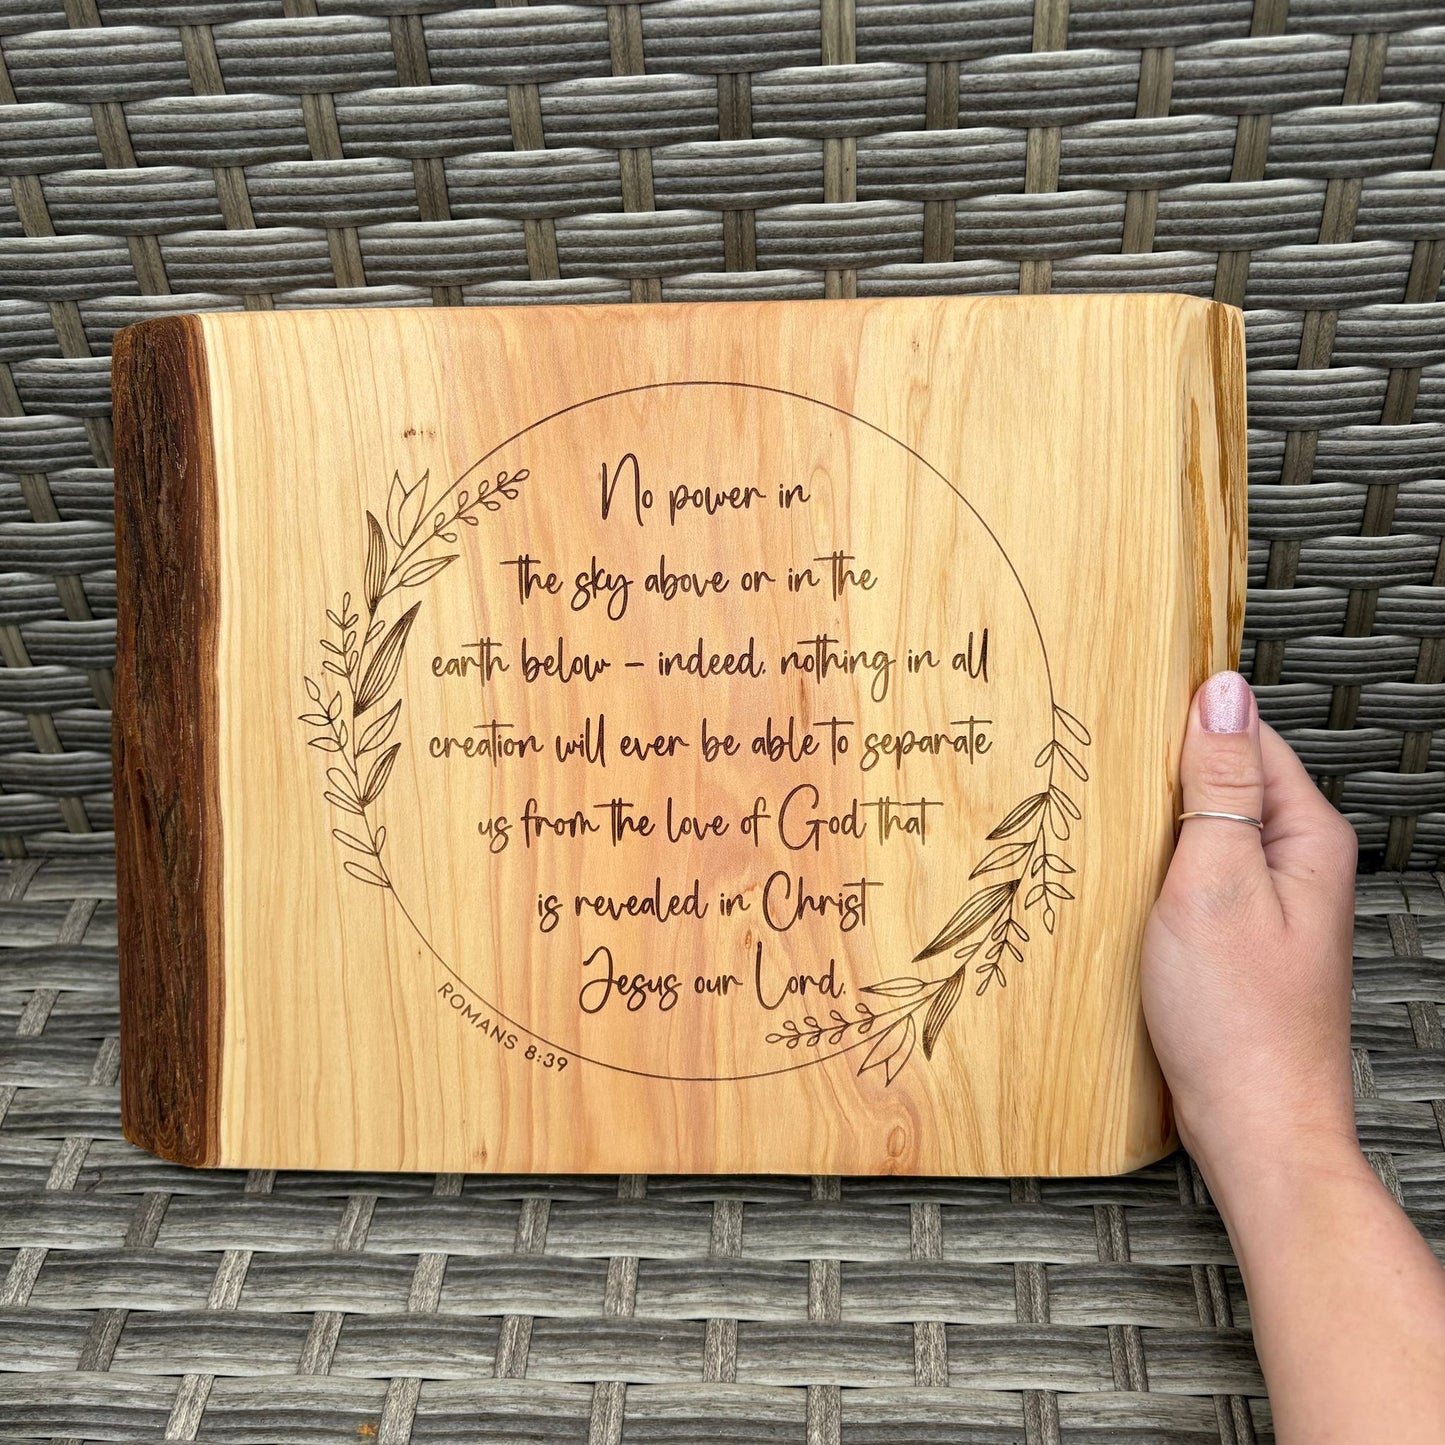 No power in
the sky above or in the
earth below – indeed, nothing in all
creation will ever be able to separate
us from the love of God that
is revealed in Christ
Jesus our Lord.
ROMANS 8:39